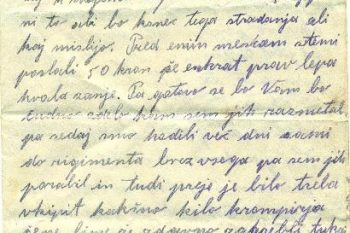 ni to ali bo konec tega stradanja ali
kaj mislijo. Pred enim mescam ste mi
poslali 50 kron še enkrat prav lepa
hvala zanje. Pa gotovo se bo Vam bo
čudno zdelo kam sem jih razmetal
pa sedaj smo hodili več dni sami
do regimenta brez vsega pa sem jih
porabil in tudi prej je bilo treba
vkupit kakšno kilo krompirja
že zdavno